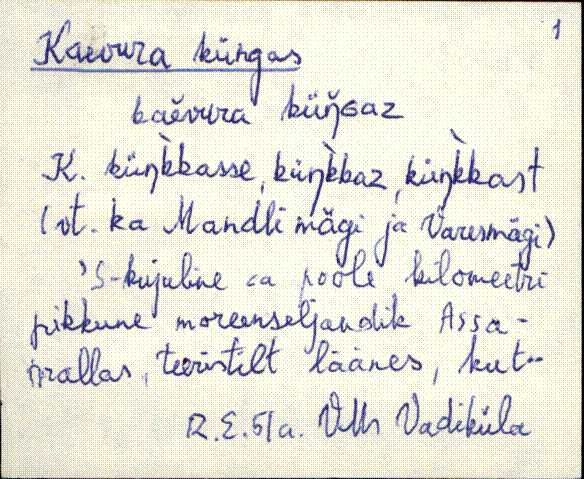 1
Kaevura küngas
kaĕvura küŋ̆ɢaz
K. küŋk̀kasse, küŋk̀kaz, küŋk̀kast
(vt. ka Mandli mägi ja Varesmägi)
'S-kujuline ca poole kilomeetri
pikkune moreenseljandik Assa-
mallas, teeristilt läänes, kut-
R.E. 51a. VMr Vadiküla